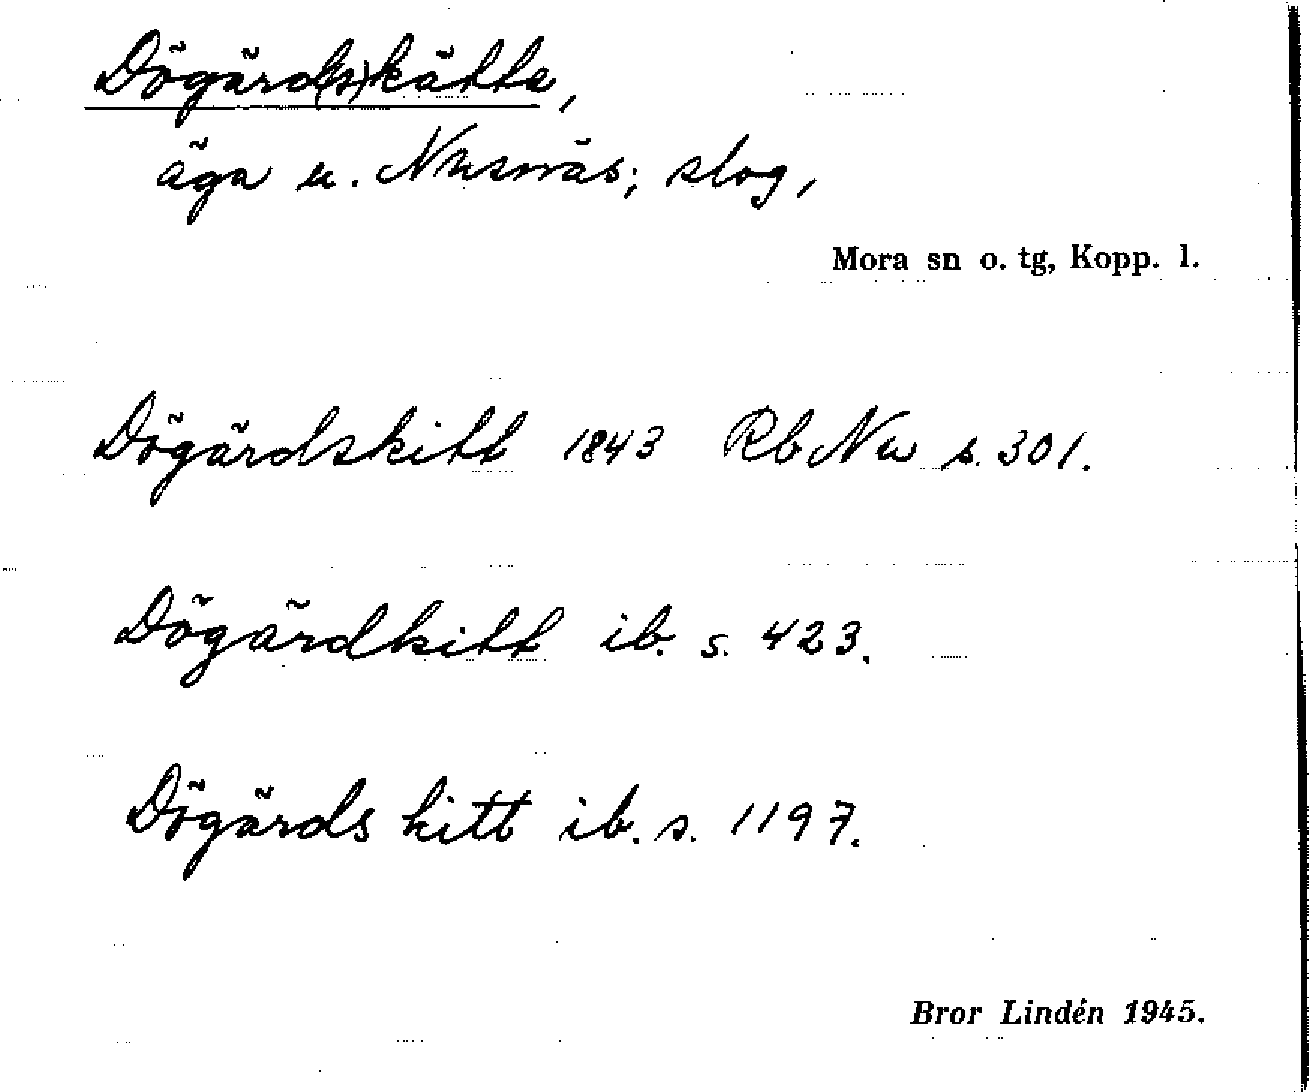 Dögärd(s)kätte,
äga u. Nusnäs; slog,
Mora sn o. tg, Kopp. l.
Dögärdskitt 1843 Rb Nu s. 301.
Dögärdkitt ib. s. 423.
Dögärds kitt ib. s. 1197.
Bror Lindén 1945.